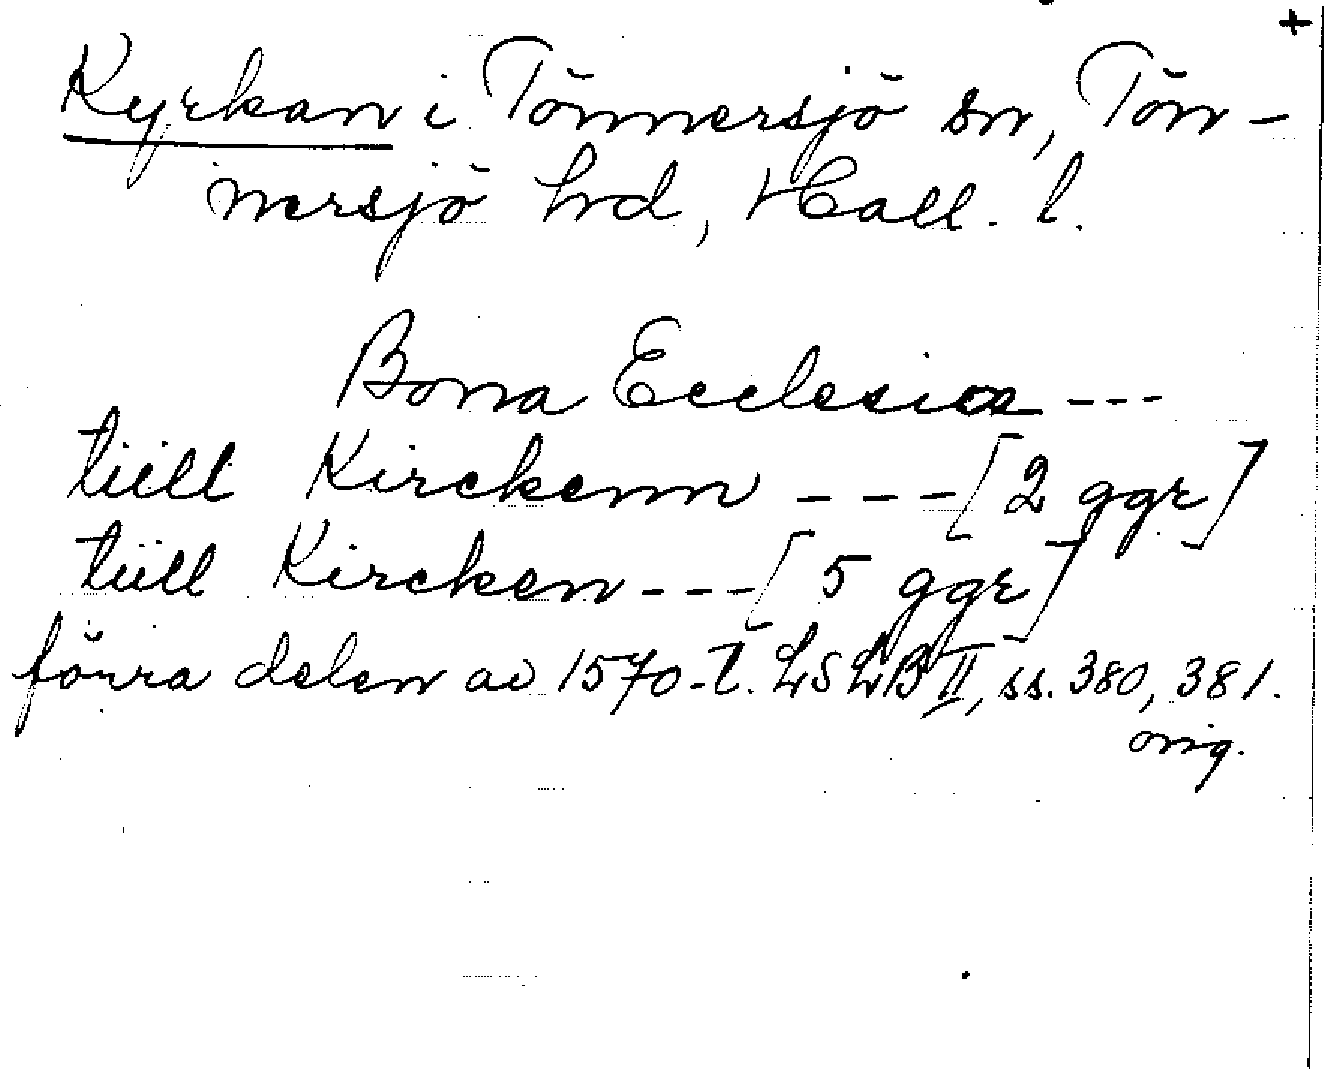 +
Kyrkan i Tönnersjö sn, Tön-
nersjö hd, Hall. l.
Bona Ecclesiæ ---
tiill Kirckenn ---[2 ggr]
tiill Kircken---[5 ggr]
förra delen av 1570-t. LSLB II, ss. 380, 381.
orig.